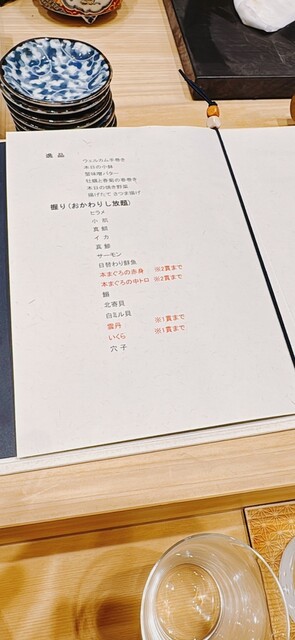 逸品
ウェルカム手巻き
本日の小鉢
蟹味噌バター
牡蠣と巻鮨の巻巻き
本日の焼き野菜
揚げたて さつま揚げ
握り（おかわりし放題）
ヒラメ
小肌
真鯛
イカ
真鯵
サーモン
日替わり鮮魚
本まぐろの赤身 ※2貫まで
本まぐろの中トロ ※2貫まで
鯖
北寄貝
白ミル貝
雲丹 ※1貫まで
いくら ※1貫まで
穴子